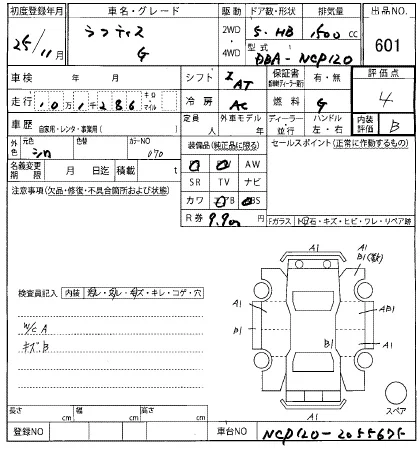 初度登録年月 車名・グレード 駆動 ドア数・形状 排気量 出品NO.
25/11月 ラクティス G 2WD 4WD 5 HB 1500 cc 601
型式 DBA-NCP120
車検 年 月 シフト AT 保証書 有・無 評価点
走行 10万1千286 キロ マイル 冷房 AC 燃料 G 4
車歴 自家用・レンタ・事業用( ) 定員 人 外車モデル 年 ディーラー 並行 ハンドル 左・右 内装評価 B
外色 元色 シロ 色替 カラーNO 070 装備品(純正品に限る) セールスポイント(正常に作動するもの)
名義変更期限 月 日迄 積載 t AW
SR TV ナビ
注意事項(欠品・修復・不具合箇所および状態) カワ
R券 9.9 Fガラス
A1
B1
検査員記入 内装 キレ・コゲ・穴 A1 A1 AB1
W/C A B1 B1 A1
キズB
A1 スペア
長さ cm 幅 cm 高さ cm
登録NO 車台NO NCP120-